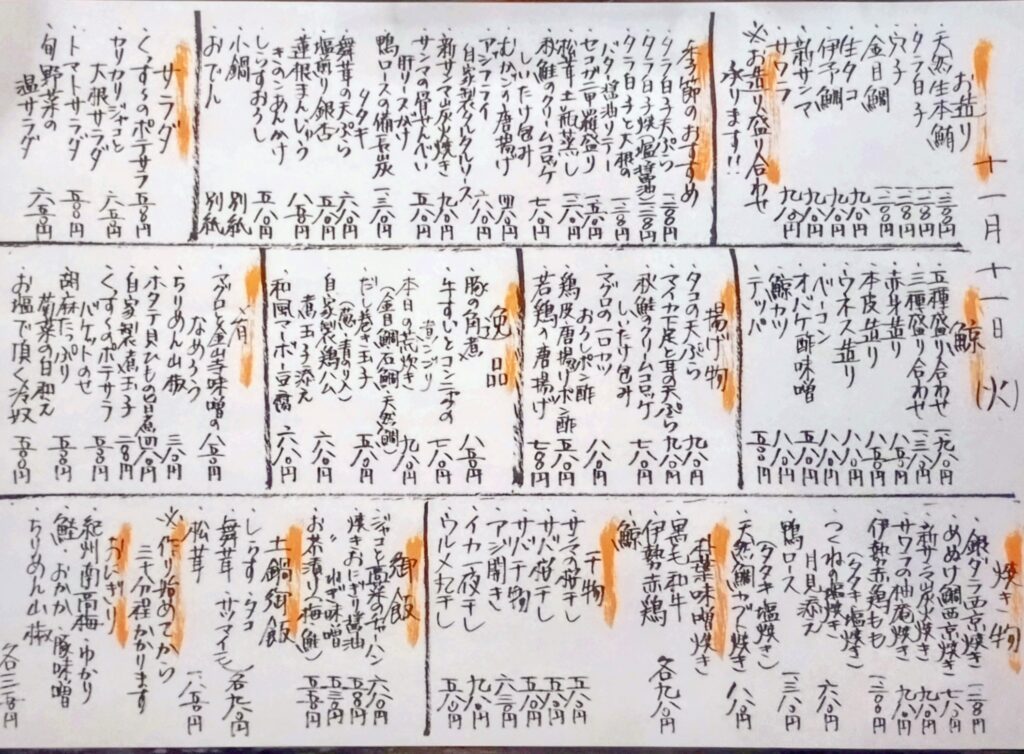 十一月十一日(火)
お造り
・天然生本鮪 一三〇〇円
・タラ白子 一三八〇円
・穴子 一三八〇円
・金目鯛 一三八〇円
・生タコ 九八〇円
・伊予鯛 九八〇円
・新サンマ 九八〇円
・サワラ 九八〇円
※お造り盛り合わせ
承ります!!
季節のおすすめ
・タラ白子天ぷら
・タラ白子焼き(塩・醤油)
・タラ白子と大根の
バター醤油ソテー
・セコガニ甲羅盛り
・松茸土瓶蒸し
・秋鮭のクリームコロッケ
しいたけ包み 七八〇円
・むかごの唐揚げ 四八〇円
・アジフライ 六八〇円
自家製タルタルソース
・新サンマ山灰焼き 九八〇円
肝ソースがけ
・サンマの骨せんべい
・鴨ロースの備長炭
タタキ
・舞茸の天ぷら 六八〇円
・塩煎り銀杏 五八〇円
・蓮根まんじゅう 八五〇円
きのこあんかけ
・しらすおろし 五八〇円
・小鍋 別紙
・おでん 別紙
サラダ
・くっすーのポテサラ 五八〇円
・カリカリジャコと
大根サラダ 六五〇円
・トマトサラダ 五五〇円
・旬野菜の
温サラダ 六五〇円
鯨
・五種盛り合わせ
・三種盛り合わせ
・赤身造り
・本皮造り
・ウネス造り
・ベーコン
・オバケ酢味噌
・鯨カツ
・テッパ
揚げ物
・タコの天ぷら 九八〇円
・マイカ下足と耳の天ぷら 九八〇円
・秋鮭のクリームコロッケ
しいたけ包み 七八〇円
・マグロの一口カツ
おろしポン酢 八八〇円
・鶏皮唐揚げポン酢 五八〇円
・若鶏の唐揚げ 七五〇円
逸品
・豚の角煮 八八〇円
・牛すじとコンニャクの
煮コンゴリ 七八〇円
・本日の荒炊き 九八〇円
(金目鯛・石鯛・天然鯛)
・だし巻き玉子 五八〇円
(葱、青のり入)
・自家製鶏ハム
煮玉子添え 六八〇円
・和風マーボー豆腐 六八〇円
肴
・マグロと金山寺味噌の
なめろう 八五〇円
・ちりめん山椒 三八〇円
・ホタテ貝ひもの旨煮 四八〇円
・自家製煮玉子
・くっすーのポテサラ
バケットのせ 五五〇円
・胡麻たっぷり
菊菜の白和え 五五〇円
・お塩で頂く冷奴 五五〇円
焼き物
・銀ダラ西京焼き
・めぬけ鯛西京焼き 七八〇円
・新サンマ炭焼き 九八〇円
・サワラの柚庵焼き 九八〇円
・伊勢赤鶏もも
(タタキ・塩焼き)
・つくねの塩焼き
月見添え 六八〇円
・鴨ロース
(タタキ・塩焼き) 一三八〇円
・天然鯛カブト焼き 八八〇円
朴葉味噌焼き
・黒毛和牛
・伊勢赤鶏
・鯨
各九八〇円
干物
・サンマの桜干し 五八〇円
・サバ桜干し 五八〇円
・サバ干物 五八〇円
・アジ開き 六三〇円
・イカ一夜干し 九八〇円
・ウルメ丸干し 五八〇円
御飯
・ジャコと高菜のチャーハン 六八〇円
・焼きおにぎり醤油 五八〇円
・〃 ねぎ味噌 五五〇円
・お茶漬け(梅・鮭) 五八〇円
土鍋御飯
・しらす ・タコ
・舞茸 ・サツマイモ
各九八〇円
・松茸 一八五〇円
※作り始めてから
三十分程かかります
おにぎり
・紀州南高梅 ・ゆかり
・鮭 ・おかか ・豚味噌
・ちりめん山椒